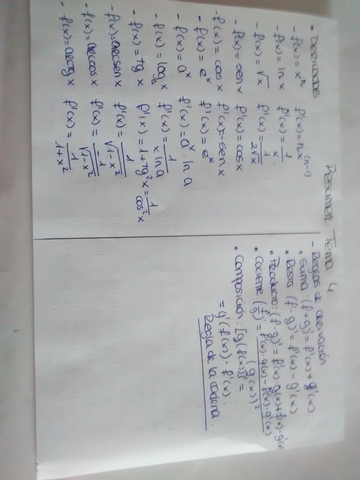 Resumen Tema 4.
• Derivadas
- f(x) = xⁿ f'(x) = nx⁽ⁿ⁻¹⁾
- f(x) = ln x f'(x) = 1/x
- f(x) = √x f'(x) = 1/2√x
- f(x) = sen x f'(x) = cos x
- f(x) = cos x f'(x) = -sen x
- f(x) = eˣ f'(x) = eˣ
- f(x) = aˣ f'(x) = aˣ · ln a
- f(x) = logₐ x f'(x) = 1/x ln a
- f(x) = tg x f'(x) = 1 + tg²x = 1/cos²x
- f(x) = arcsen x f'(x) = 1/√1-x²
- f(x) = arccos x f'(x) = -1/√1-x²
- f(x) = arctg x f'(x) = 1/1+x²
- Reglas de derivación
• Suma: (f+g)' = f'(x) + g'(x).
• Resta: (f-g)' = f'(x) - g'(x)
• Producto: (f·g)' = f'(x)·g(x) + f(x)·g'(x)
• Cociente (f/g)' = f'(x)·g(x) - f(x)·g'(x)/(g(x))²
• Composición: [g(f(x))]' =
= g'(f(x)) · f'(x).
Regla de la cadena.